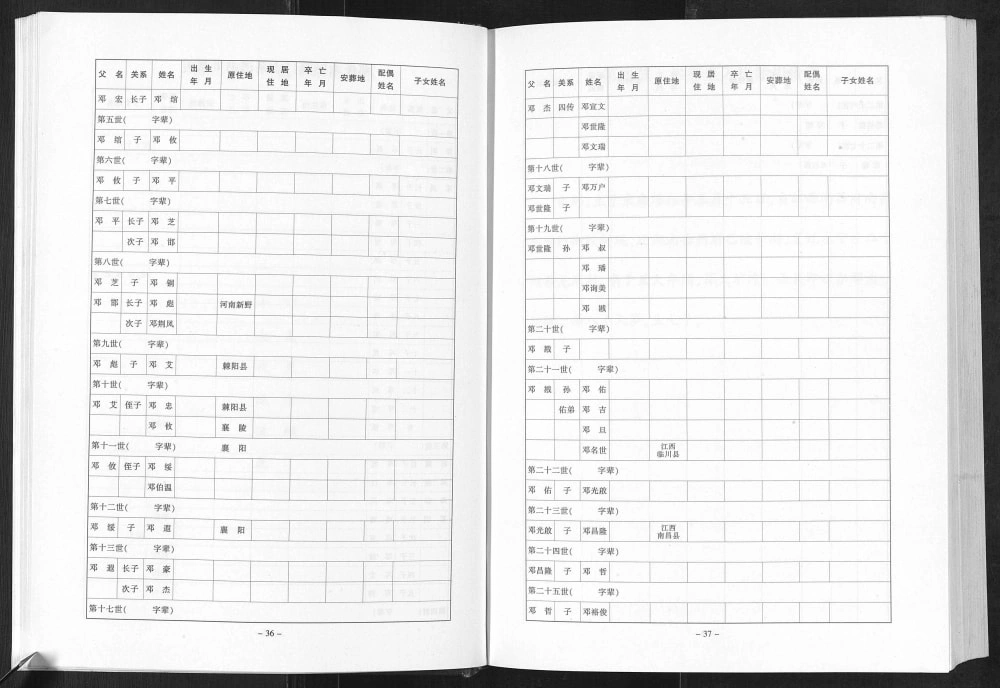 父 名 关系 姓名 出 生 年 月 原住地 现 居 住 地 卒 亡 年 月 安葬地 配偶 姓名 子女姓名
邓 宏 长子 邓 绾
第五世( 字辈)
邓 绾 子 邓 攸
第六世( 字辈)
邓 攸 子 邓 平
第七世( 字辈)
邓 平 长子 邓 芝
次子 邓 邯
第八世( 字辈)
邓 芝 子 邓
邓 长子 邓 彪 河南新野
次子 邓荆凤
第九世( 字辈)
邓 彪 子 邓 艾 棘阳县
第十世( 字辈)
邓 艾 侄子 邓 忠 棘阳县
邓 攸 襄 陵
第十一世( 字辈) 襄 阳
邓 攸 侄子 邓 绥
邓伯温
第十二世( 字辈)
邓 绥 子 邓 遐 襄 阳
第十三世( 字辈)
邓 遐 长子 邓 豪
次子 邓 杰
第十七世( 字辈)
- 36 -
父 名 关系 姓名 出 生 年 月 原住地 现 居 住 地 卒 亡 年 月 安葬地 配偶 姓名 子女姓名
邓 杰 四传 邓宣文
邓世隆
邓文瑞
第十八世( 字辈)
邓文瑞 子 邓万户
邓世隆 子
第十九世( 字辈)
邓世隆 孙 邓 叔
邓 璠
邓询美
邓 戬
第二十世( 字辈)
邓 戬 子
第二十一世( 字辈)
邓 戬 孙 邓 佑
佑弟 邓 吉
邓 旦
邓名世 江西 临川县
第二十二世( 字辈)
邓 佑 子 邓光啟
第二十三世( 字辈)
邓光啟 子 邓昌隆 江西 南昌县
第二十四世( 字辈)
邓昌隆 子 邓 哲
第二十五世( 字辈)
邓 哲 子 邓裕俊
- 37 -